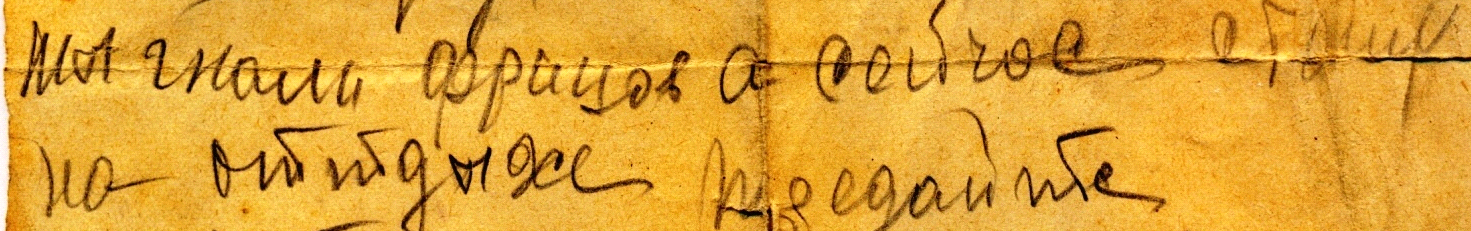 мы гнали фрицов а сейчас стоим
на оттдыхе предайте